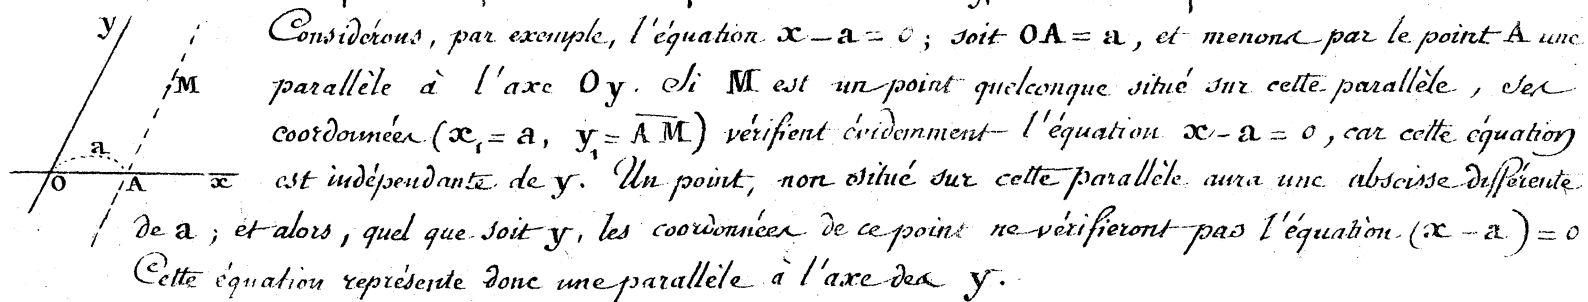 y
M
a
O A x
Considérons, par exemple, l'équation x - a = 0 ; soit OA = a, et menons par le point A une
parallèle à l'axe Oy. Si M est un point quelconque situé sur cette parallèle, ses
coordonnées (x₁ = a, y₁ = \overline{AM}) vérifient évidemment l'équation x - a = 0, car cette équation
est indépendante de y. Un point, non situé sur cette parallèle aura une abscisse différente
de a ; et alors, quel que soit y, les coordonnées de ce point ne vérifieront pas l'équation (x - a) = 0
Cette équation représente donc une parallèle à l'axe des y.